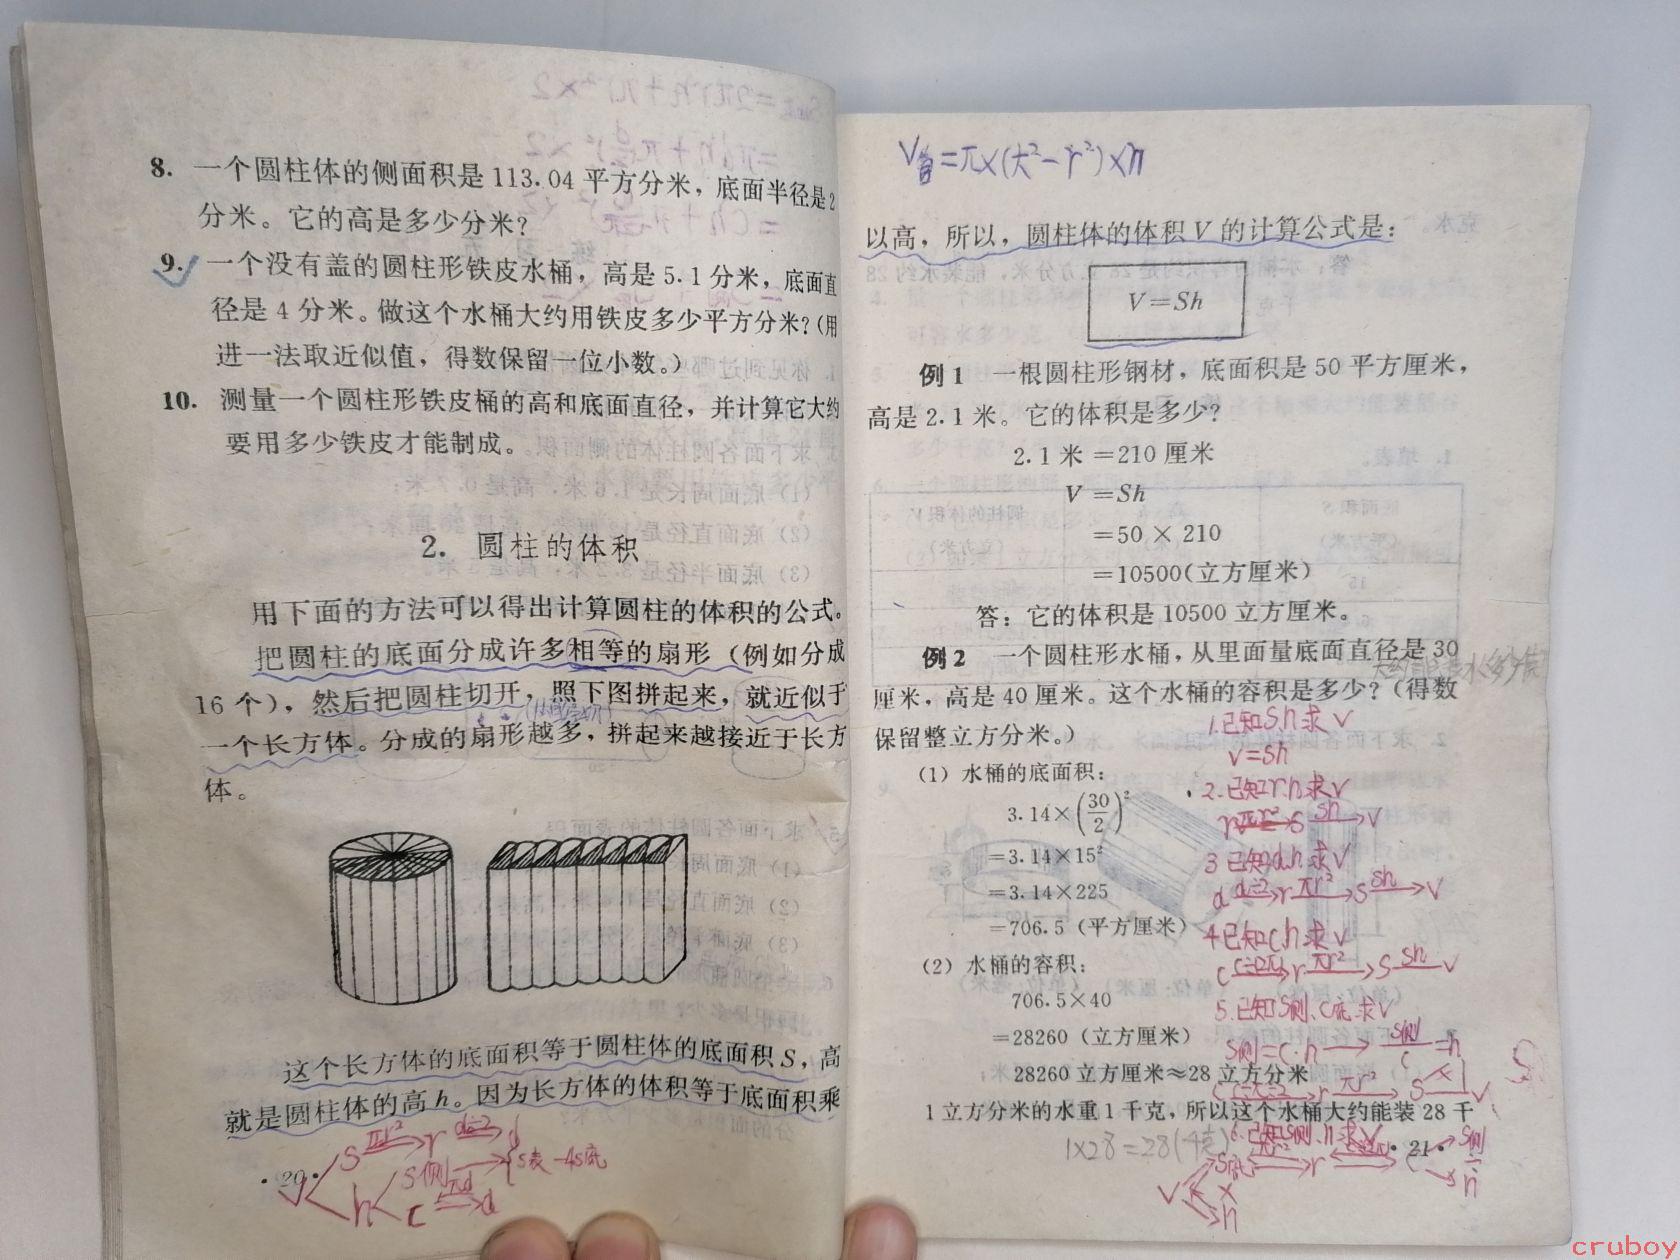 8. 一个圆柱体的侧面积是 113.04 平方分米，底面半径是 2
分米。它的高是多少分米？
9. 一个没有盖的圆柱形铁皮水桶，高是 5.1 分米，底面直
径是 4 分米。做这个水桶大约用铁皮多少平方分米？（用
进一法取近似值，得数保留一位小数。）
10. 测量一个圆柱形铁皮桶的高和底面直径，并计算它大约
要用多少铁皮才能制成。
2. 圆柱的体积
用下面的方法可以得出计算圆柱的体积的公式。
把圆柱的底面分成许多相等的扇形（例如分成
16 个），然后把圆柱切开，照下图拼起来，就近似于
一个长方体。分成的扇形越多，拼起来越接近于长方
体。
这个长方体的底面积等于圆柱体的底面积 S，高
就是圆柱体的高 h。因为长方体的体积等于底面积乘
S πr² r d÷2 d
V h S侧 S表-4S底
C πd d
·20·
以高，所以，圆柱体的体积 V 的计算公式是：
V=Sh
例 1 一根圆柱形钢材，底面积是 50 平方厘米，
高是 2.1 米。它的体积是多少？
2.1 米 =210 厘米
V =Sh
=50 × 210
=10500(立方厘米)
答：它的体积是 10500 立方厘米。
例 2 一个圆柱形水桶，从里面量底面直径是 30
厘米，高是 40 厘米。这个水桶的容积是多少？（得数
保留整立方分米。）
(1) 水桶的底面积：
3.14×(30/2)²
=3.14×15²
=3.14×225
=706.5 (平方厘米)
(2) 水桶的容积：
706.5×40
=28260 (立方厘米)
28260 立方厘米≈28 立方分米
1 立方分米的水重 1 千克，所以这个水桶大约能装 28 千
·21·
1.已知Sh求V
V=Sh
2.已知r.h求V
r πr² S Sh V
3.已知d.h求V
d d÷2 r πr² S Sh V
4.已知C.h求V
r πr² S Sh V
5.已知S侧.C底.求V
S侧=C·h → S侧/C =h
6.已知S侧.h求V
1×28=28(千克)
cruboy